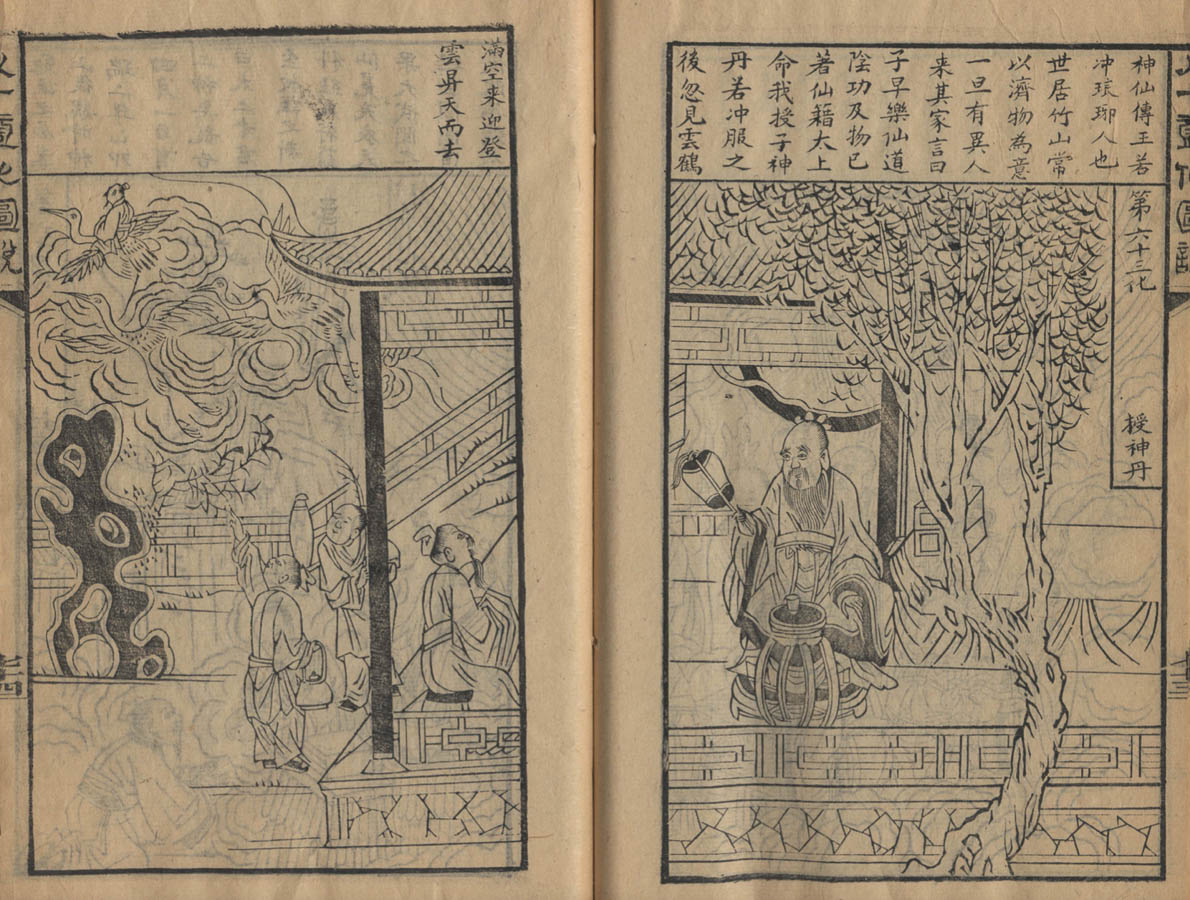 神仙傳王若
冲琅琊人也
世居竹山常
以濟物為意
一旦有異人
来其家言曰
子早樂仙道
陰功及物已
著仙籍太上
命我授子神
丹若冲服之
後忽見雲鶴
第六十二化
授神丹
滿空来迎登
雲昇天而去
化圖說